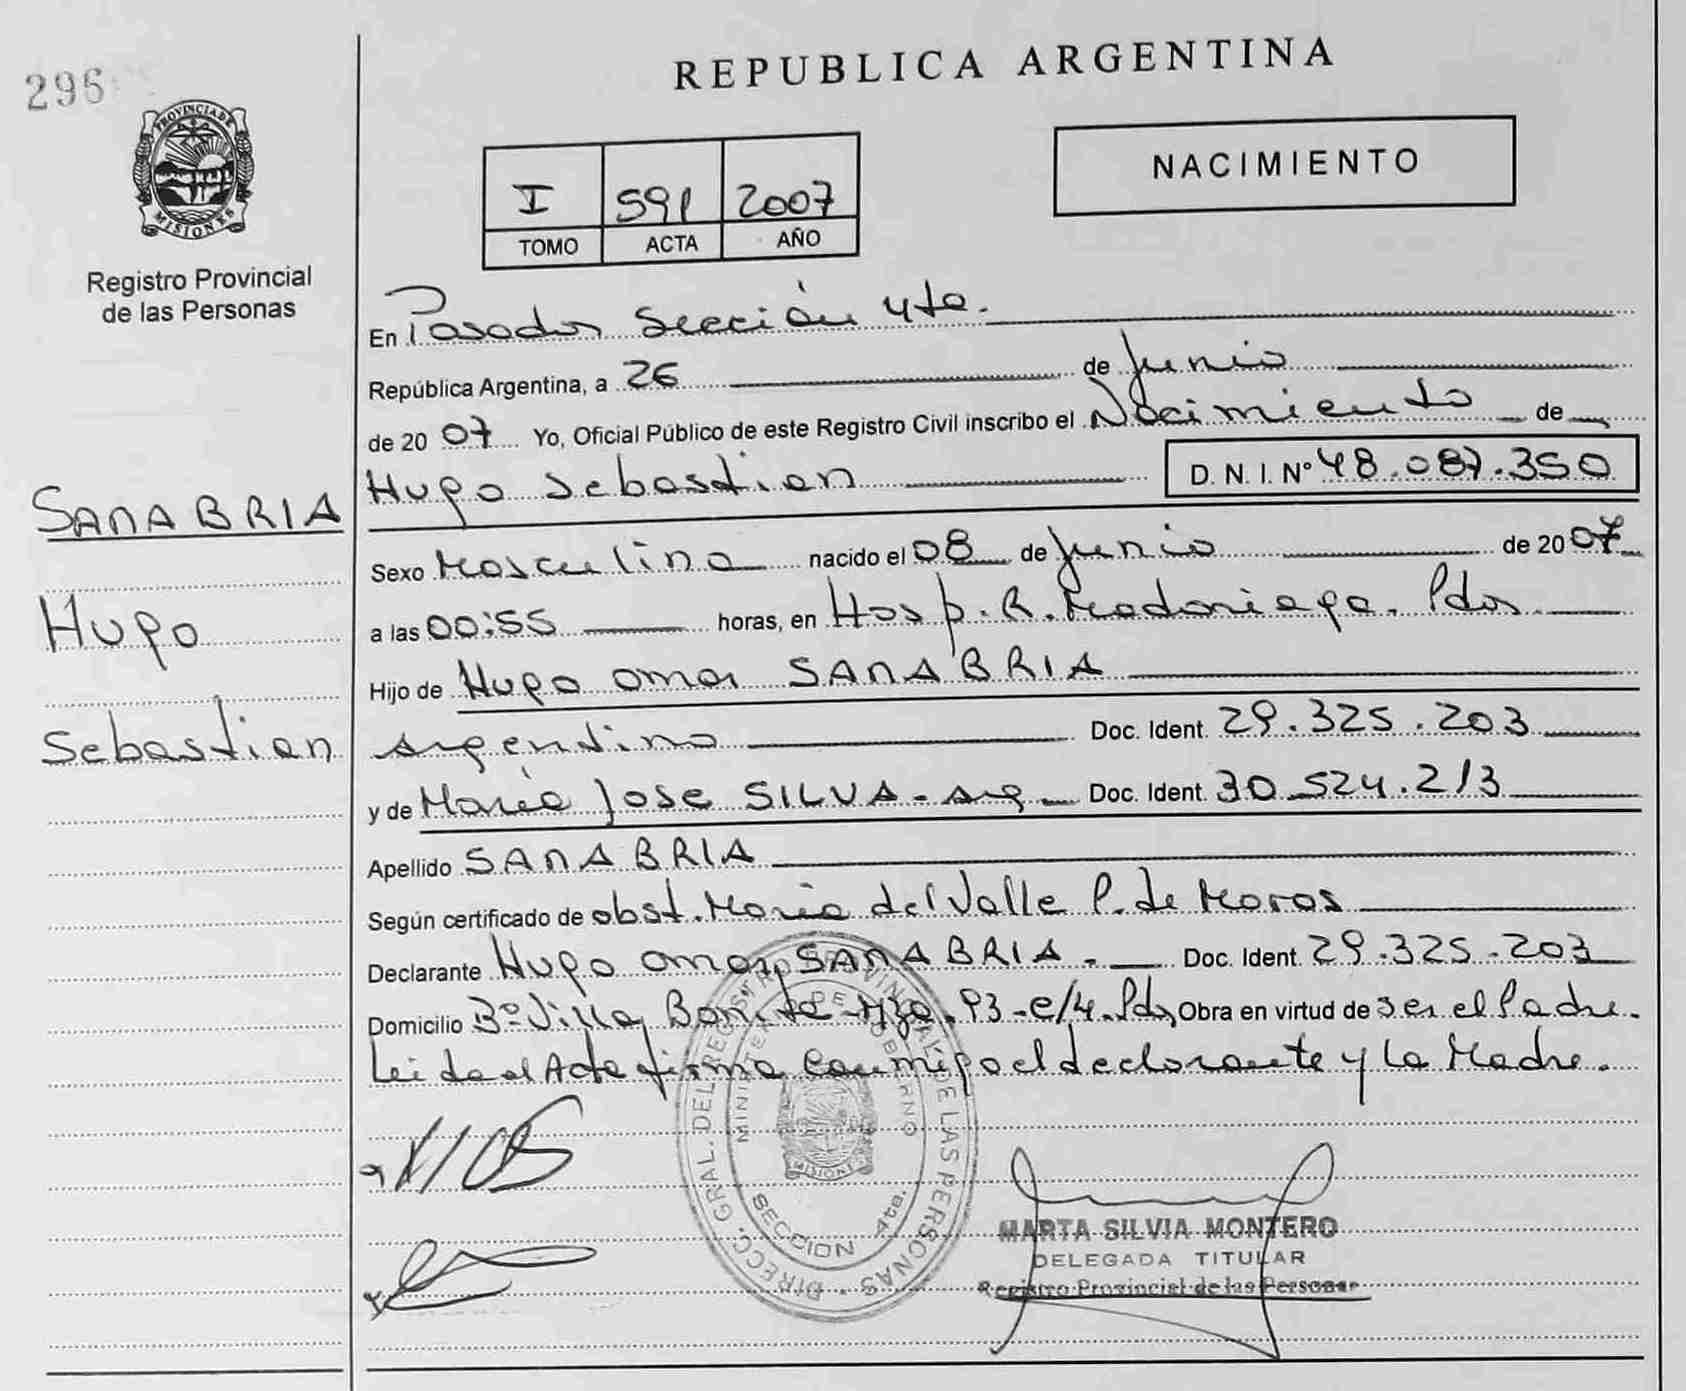 296
REPUBLICA ARGENTINA
PROVINCIA DE
MISIONES
Registro Provincial
de las Personas
I 591 2007
TOMO ACTA AÑO
NACIMIENTO
En Posadas Sección 4ta.
República Argentina, a 26 de Junio
de 2007 Yo, Oficial Público de este Registro Civil inscribo el Nacimiento de
Hugo Sebastian D. N. I. Nº 48.087.350
SANABRIA
Hugo
Sebastian
Sexo Masculino nacido el 08 de Junio de 2007
a las 00:55 horas, en Hosp. R. Madariaga. Pdas.
Hijo de Hugo Omar SANABRIA
argentino Doc. Ident. 29.325.203
y de María Jose SILVA - arg Doc. Ident. 30.524.213
Apellido SANABRIA
Según certificado de obst. Maria del Valle P. de Moras
Declarante Hugo Omar SANABRIA. - Doc. Ident. 29.325.203
Domicilio Bº Villa Bonita - Mza. 93 - C/4. Pdas Obra en virtud de ser el Padre.
Leida el Acta firma conmigo el declarante y la Madre.
DIRECC. GRAL. DEL REGISTRO PROVINCIAL DE LAS PERSONAS
MINISTERIO DE GOBIERNO
MISIONES
SECCION 4ta.
MARTA SILVIA MONTERO
DELEGADA TITULAR
Registro Provincial de las Personas